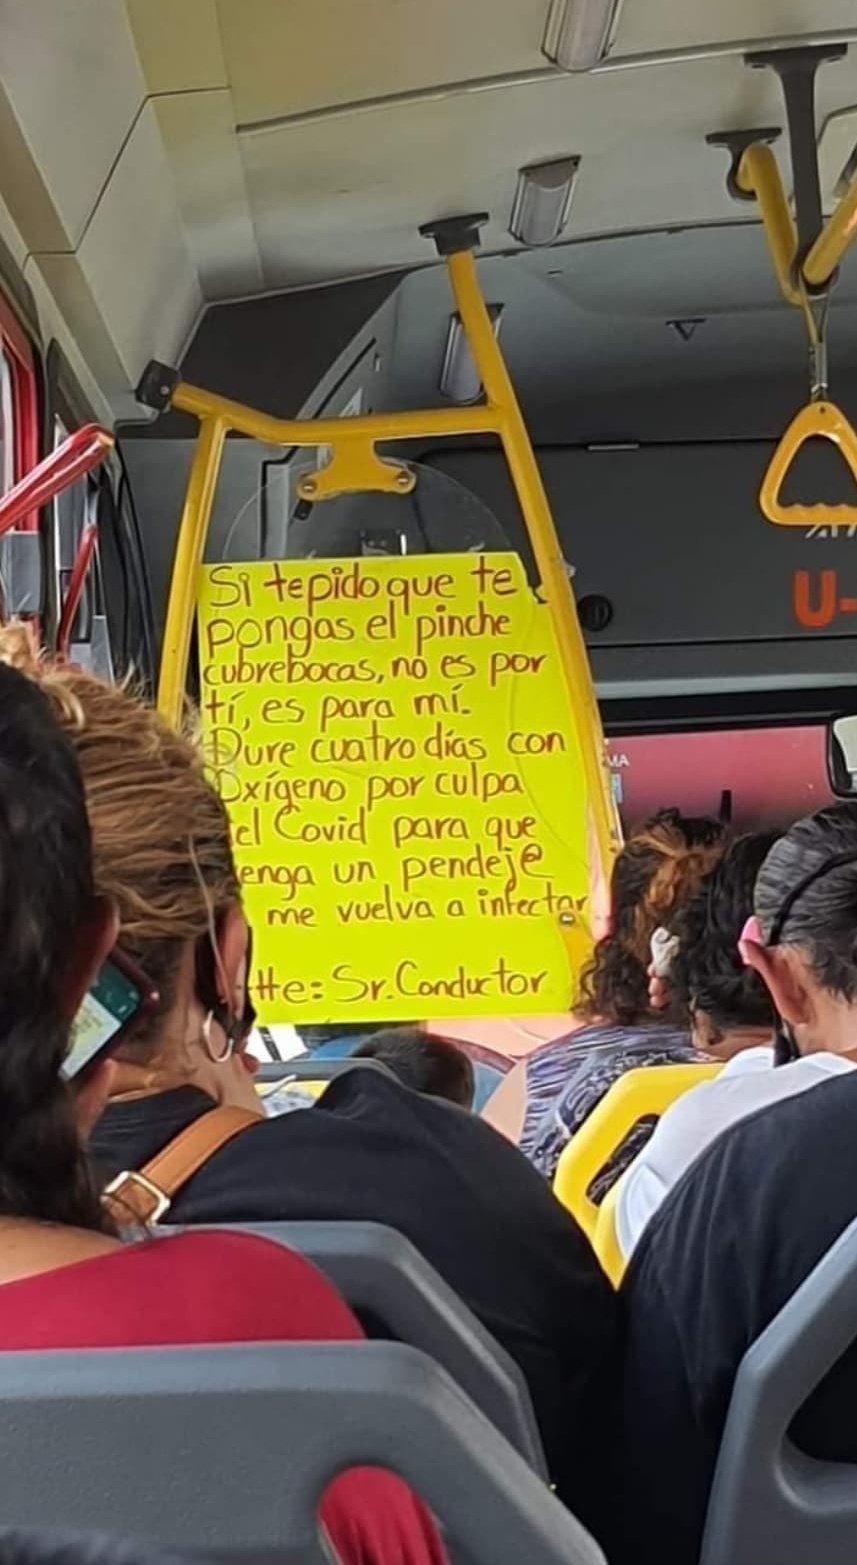 Si te pido que te
pongas el pinche
cubrebocas, no es por
tí, es para mí.
Dure cuatro días con
Oxígeno por culpa
el Covid para que
enga un pendej@
me vuelva a infectar
tte: Sr. Conductor
U-
MA